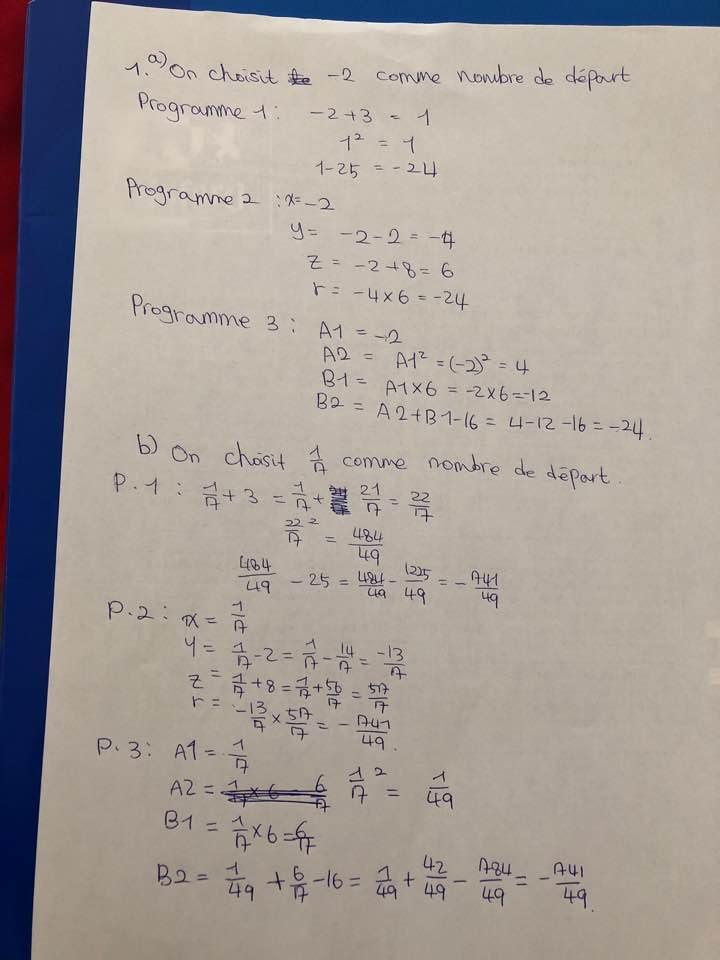 1. a) On choisit -2 comme nombre de départ
Programme 1 : -2+3 = 1
1² = 1
1-25 = -24
Programme 2 : x = -2
y = -2-2 = -4
z = -2+8 = 6
r = -4×6 = -24
Programme 3 : A1 = -2
A2 = A1² = (-2)² = 4
B1 = A1×6 = -2×6 = -12
B2 = A2+B1-16 = 4-12-16 = -24.
b) On choisit 1/7 comme nombre de départ.
P.1 : 1/7 + 3 = 1/7 + 21/7 = 22/7
22/7² = 484/49
484/49 - 25 = 484/49 - 1225/49 = -741/49
P.2 : x = 1/7
y = 1/7 - 2 = 1/7 - 14/7 = -13/7
z = 1/7 + 8 = 1/7 + 56/7 = 57/7
r = -13/7 × 57/7 = -741/49.
P.3 : A1 = 1/7
A2 = 1/7² = 1/49
B1 = 1/7 × 6 = 6/7
B2 = 1/49 + 6/7 - 16 = 1/49 + 42/49 - 784/49 = -741/49.